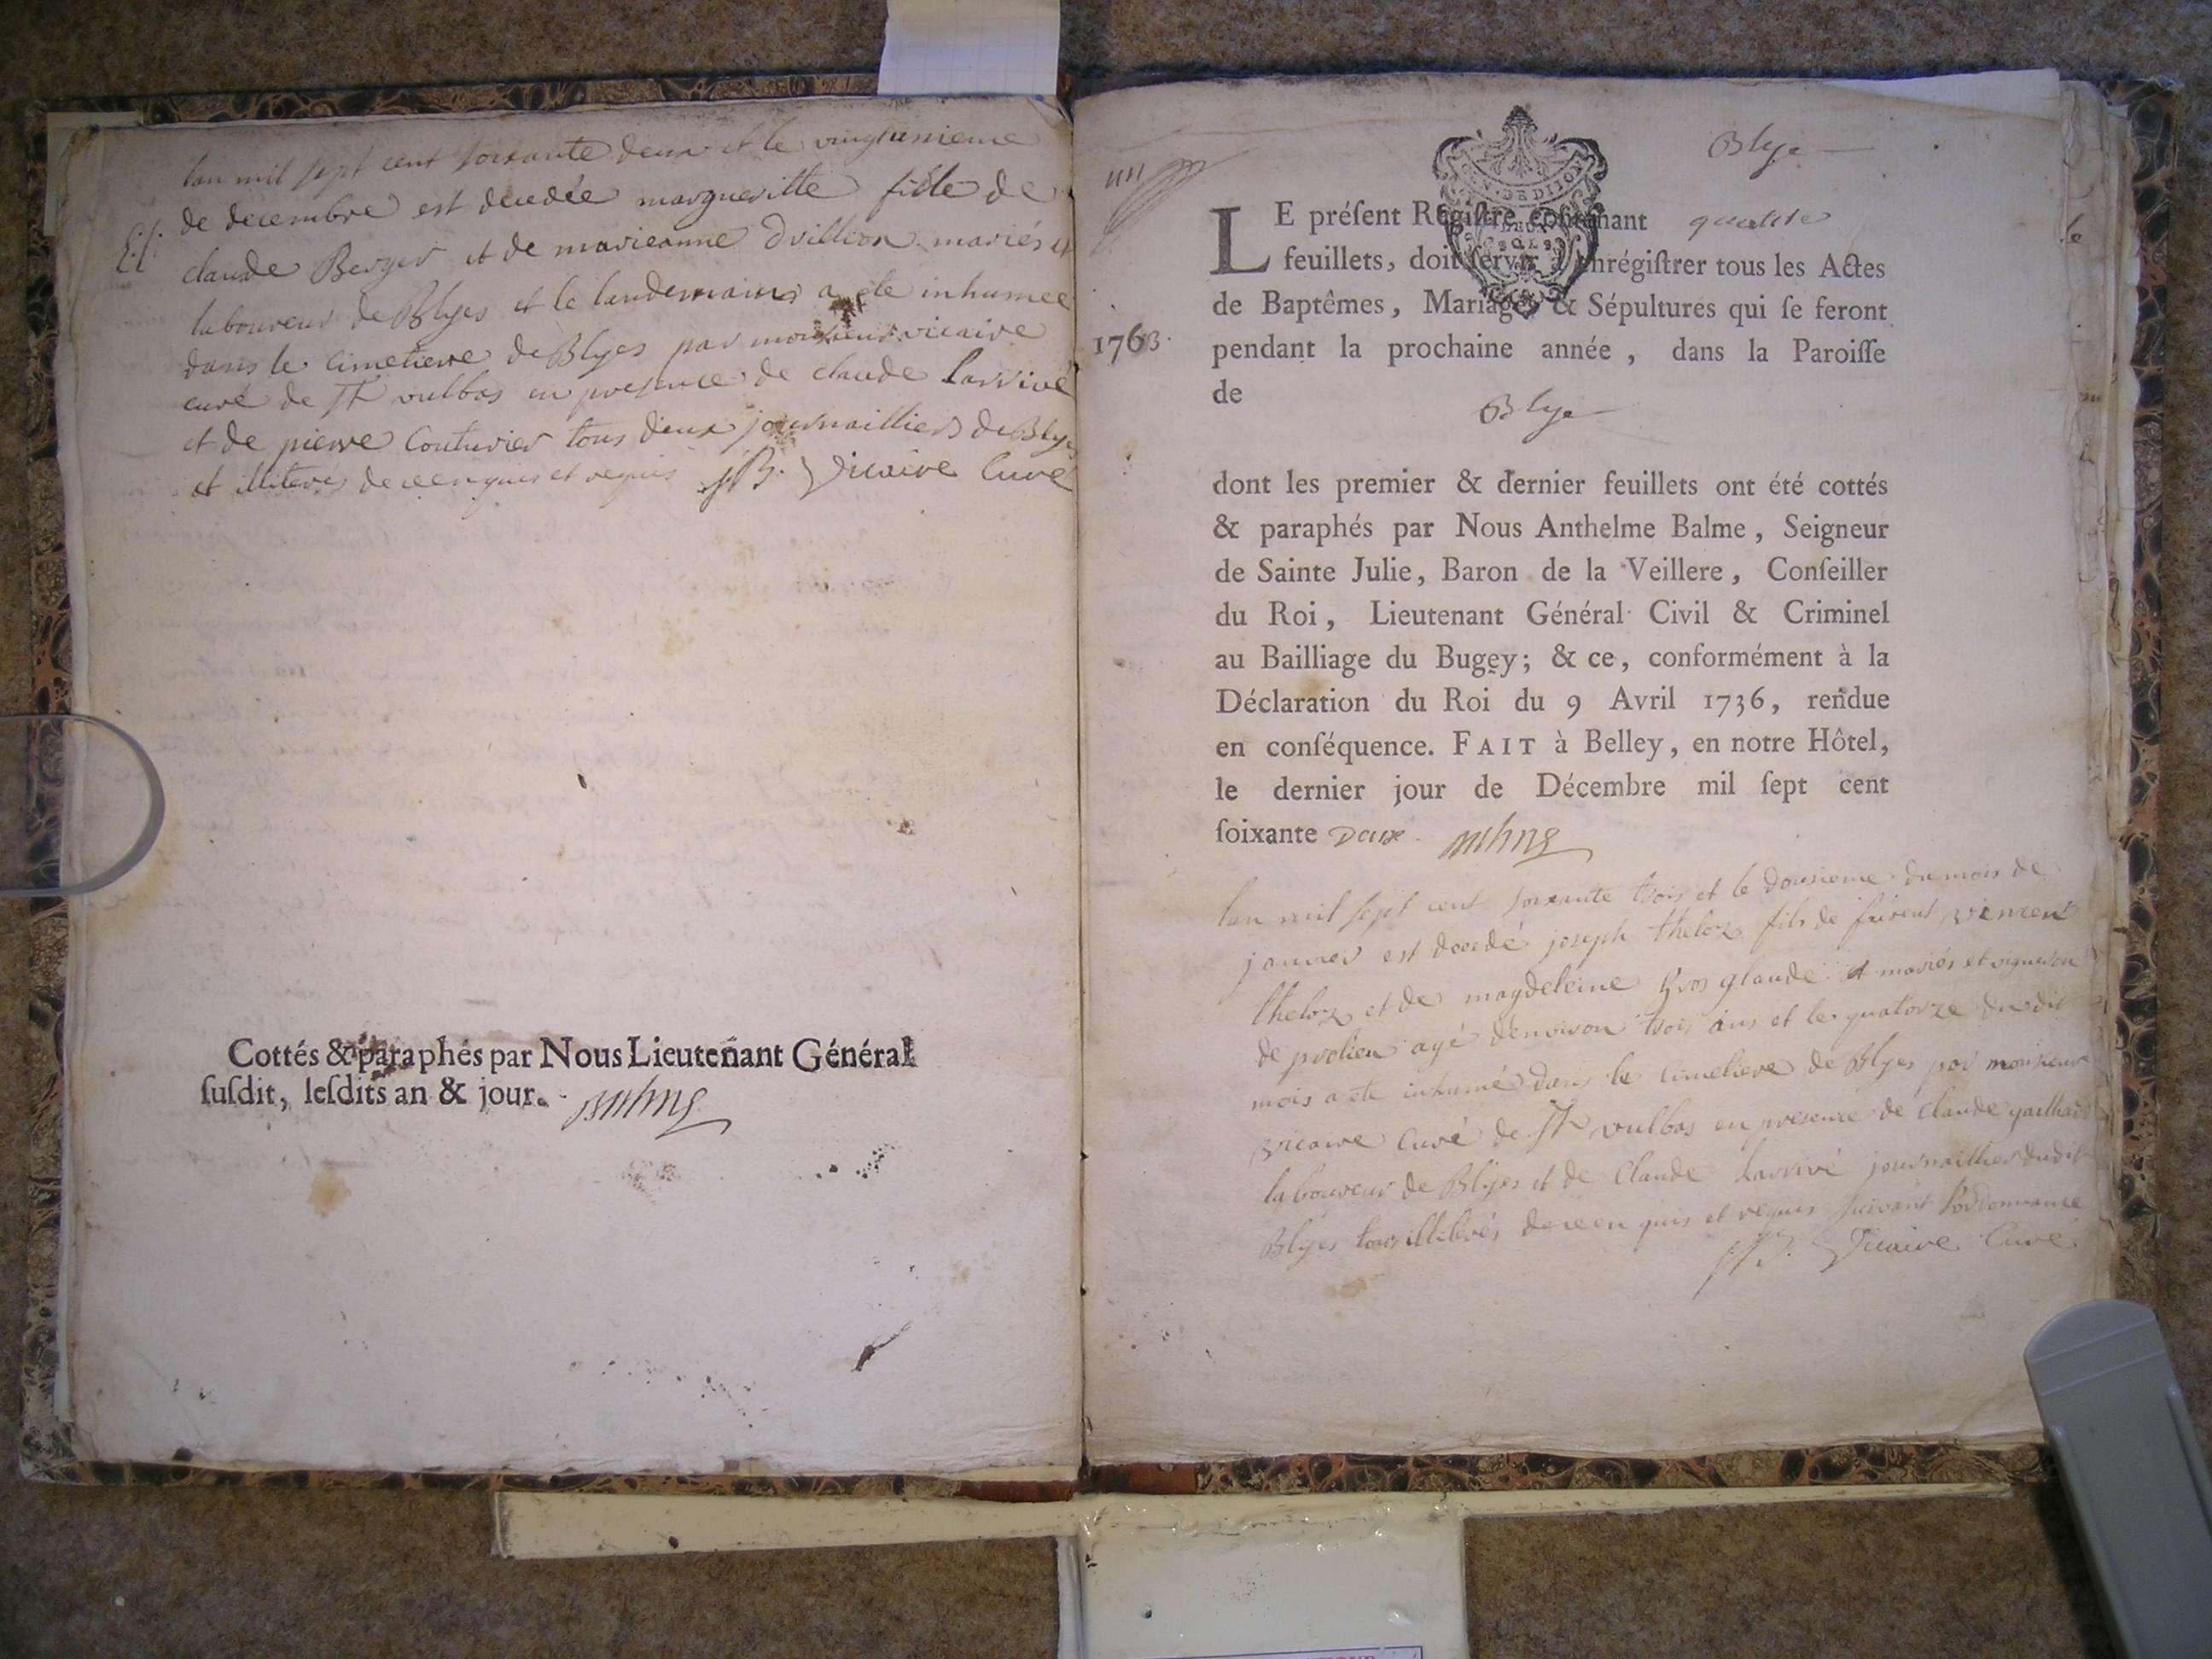 lan mil sept cent soixante deux et le vingtunieme
de decembre est decedée margueritte fille de
E.f.
claude Berger et de marieanne mariés et
laboureur de Blyes et le landemains a ete inhumee
dans le cimetiere de Blyes par monsieur vicaire
curé de St vulbas en presence de claude Larrivé
et de pierre Couturier tous deux journailliers de Blyes
et illiterés de ce enquis et requis JB. Vicaire Curé
Cottés & paraphés par Nous Lieutenant Général
ſuſdit, leſdits an & jour.
Blye
LE préſent Régiſtre contenant quattre
feuillets, doit ſervir à enrégiſtrer tous les Actes
de Baptêmes, Mariages & Sépultures qui ſe feront
1763. pendant la prochaine année, dans la Paroiſſe
de
Blye
dont les premier & dernier feuillets ont été cottés
& paraphés par Nous Anthelme Balme, Seigneur
de Sainte Julie, Baron de la Veillere, Conſeiller
du Roi, Lieutenant Général Civil & Criminel
au Bailliage du Bugey; & ce, conformément à la
Déclaration du Roi du 9 Avril 1736, rendue
en conſéquence. FAIT à Belley, en notre Hôtel,
le dernier jour de Décembre mil ſept cent
ſoixante Deux.
lan mil sept cent soixante trois et le dousieme du mois de
janvier est decedé joseph theloz fils de vincent
theloz et de magdeleine gros glaude mariés et vigneron
de prolieu agé denviron trois ans et le quatorze du dit
mois a ete inhumé dans le cimetiere de Blyes par monsieur
vicaire Curé de St vulbas en presence de Claude gailliard
laboureur de Blyes et de Claude Larrivé journaillier dudit
Blyes tous illiterés de ce en quis et requis suivant l'ordonnance
JB. Vicaire Curé